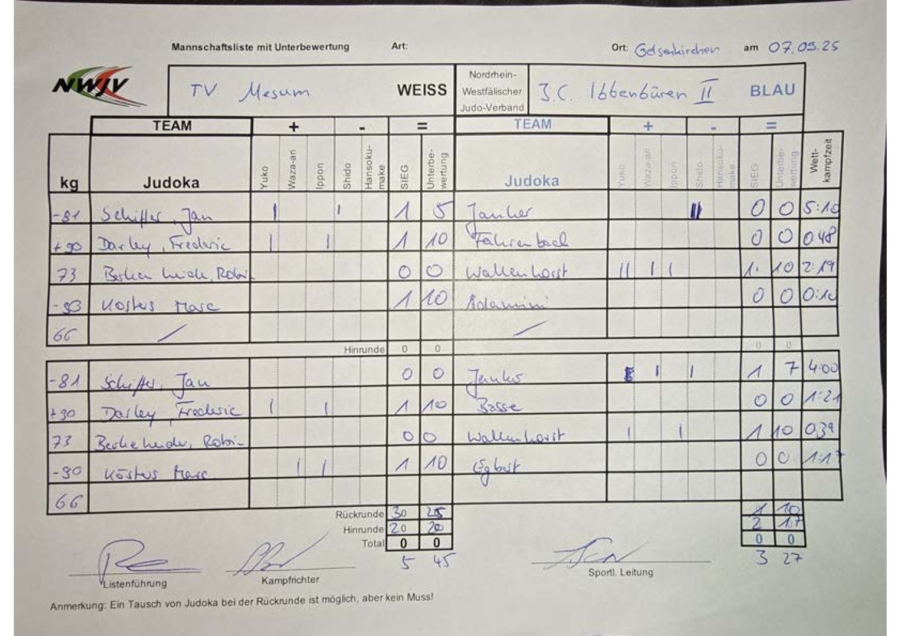 Mannschaftsliste mit Unterbewertung Art: Ort: Gelsenkirchen am 07.09.25
NWJV TV Mesum WEISS Nordrhein-Westfälischer Judo-Verband J.C. Ibbenbüren II BLAU
TEAM + - = TEAM + - =
kg Judoka Yuko Waza-ari Ippon Shido Hansoku-make SIEG Unterbewertung Judoka Yuko Waza-ari Ippon Shido Hansoku-make SIEG Unterbewertung Wettkampfzeit
-81 Schiffer, Jan | | 1 5 || 0 0 5:10
+90 Darley, Frederic | | 1 10 Fahrenbach 0 0 0:48
73 0 0 Wallenhorst || | | 1 10 2:19
Marc 1 10 Adamini 0 0
66 / /
Hinrunde 0 0 0 0
-81 Schiffer, Jan 0 0 | | 1 7 4:00
+90 Darley, Frederic | | 1 10 Basse 0 0 1:21
73 0 0 Wallenhorst | | 1 10 0:39
-90 Marc | | 1 10 Egbert 0 0 1:17
66
Rückrunde 30 25 10
Hinrunde 20 20 2 17
Total 0 0 0 0
5 45 3 27
Listenführung Kampfrichter Sportl. Leitung
Anmerkung: Ein Tausch von Judoka bei der Rückrunde ist möglich, aber kein Muss!